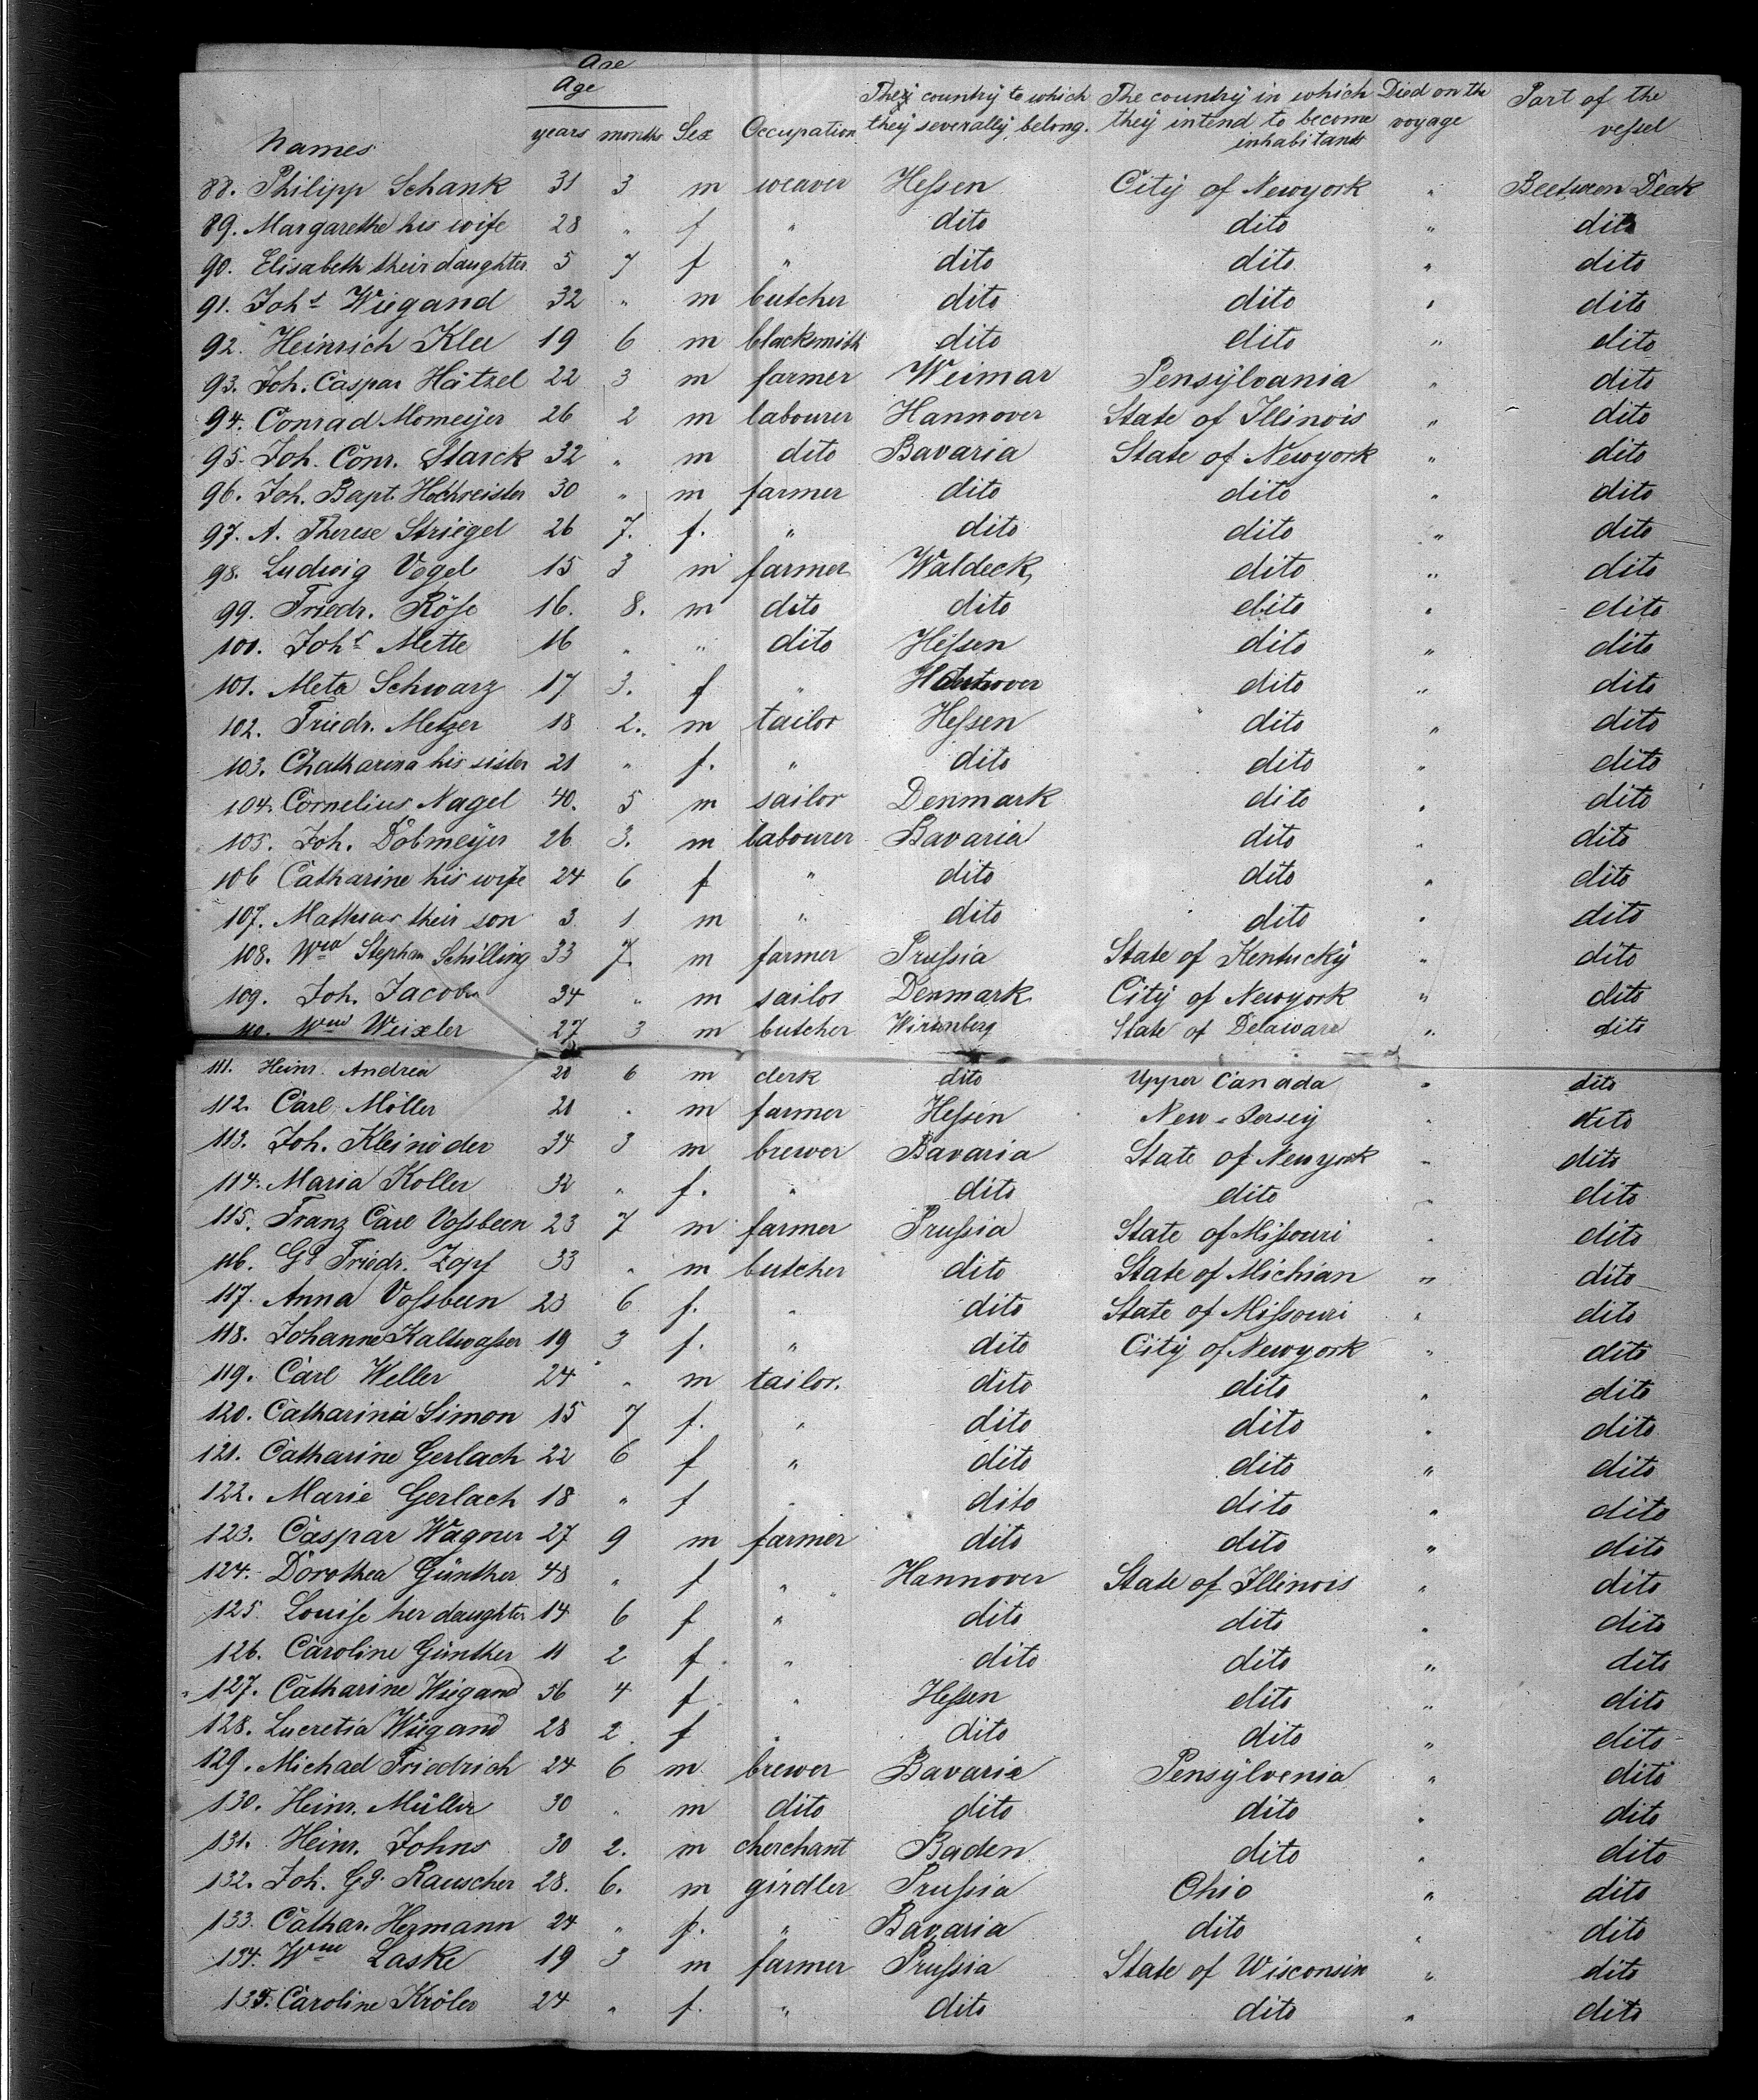 Age
Age
Names years months Sex Occupation They country to which they severally belong. The country in which they intend to become inhabitants Died on the voyage Part of the vessel
88. Philipp Schank 31 3 m weaver Hessen City of Newyork " Beetween Deck
89. Margarethe his wife 28 " f " dito dito " dito
90. Elisabeth their daughter 5 7 f " dito dito " dito
91. Johs Wiegand 32 " m butcher dito dito " dito
92. Heinrich Klee 19 6 m blacksmith dito dito " dito
93. Joh. Caspar Hätzel 22 3 m farmer Weimar Pensylvania " dito
94. Conrad Momeyer 26 2 m labourer Hannover State of Illinois " dito
95. Joh. Conr. Starck 32 " m dito Bavaria State of Newyork " dito
96. Joh. Bapt. Hochreister 30 " m farmer dito dito " dito
97. A. Therese Striegel 26 7. f. " dito dito " dito
98. Ludwig Vogel 15 3 m farmer Waldeck dito " dito
99. Friedr. Röse 16. 8. m dito dito dito " dito
100. Johs Mette 16 " " dito Hessen dito " dito
101. Meta Schwarz 17 3. f " Hannover dito " dito
102. Friedr. Metzer 18 2. m tailor Hessen dito " dito
103. Chatharina his sister 21 " f. " dito dito " dito
104. Cornelius Nagel 40. 5 m sailor Denmark dito " dito
105. Joh. Dobmeyer 26 3. m labourer Bavaria dito " dito
106 Catharine his wife 24 6 f " dito dito " dito
107. Mathias their son 3 1 m " dito dito " dito
108. Wm Stephan Schilling 33 7. m farmer Prussia State of Kentucky " dito
109. Joh. Jacobs 34 " m sailor Denmark City of Newyork " dito
110. Wm Weixler 27 3 m butcher Wirtenberg State of Delaware " dito
111. Heinr. Andrea 20 6 m clerk dito Upper Canada " dito
112. Carl Möller 21 " m farmer Hessen New-Jersey " dito
113. Joh. Kleinöder 34 3 m brewer Bavaria State of Newyork " dito
114. Maria Koller 32 " f. " dito dito " dito
115. Franz Carl Vossbeen 23 7 m farmer Prussia State of Missouri " dito
116. Gg Friedr. Zopf 33 " m butcher dito State of Michian " dito
117. Anna Vossbeen 23 6 f. " dito State of Missouri " dito
118. Johanne Kaltwasser 19 3 f. " dito City of Newyork " dito
119. Carl Weller 24 " m tailor. dito dito " dito
120. Catharina Simon 15 7 f. " dito dito " dito
121. Catharine Gerlach 22 6 f " dito dito " dito
122. Marie Gerlach 18 " f " dito dito " dito
123. Caspar Wagner 27 9 m farmer dito dito " dito
124. Dorothea Günther 48 " f " Hannover State of Illinois " dito
125. Louise her daughter 14 6 f " dito dito " dito
126. Caroline Günther 11 2 f " dito dito " dito
127. Catharine Wiegand 56 4 f " Hessen dito " dito
128. Lucretia Wiegand 28 2 f " dito dito " dito
129. Michael Friedrich 24 6 m brewer Bavaria Pensylvenia " dito
130. Heinr. Müller 30 " m dito dito dito " dito
131. Heinr. Johns 30 2. m cherchant Baden dito " dito
132. Joh. Gg. Rauscher 28. 6. m girdler Prussia Ohio " dito
133. Cathar. Hermann 24 " f. " Bavaria dito " dito
134. Wm Laske 19 3 m farmer Prussia State of Wisconsin " dito
135. Caroline Kröler 24 " f. " dito dito " dito